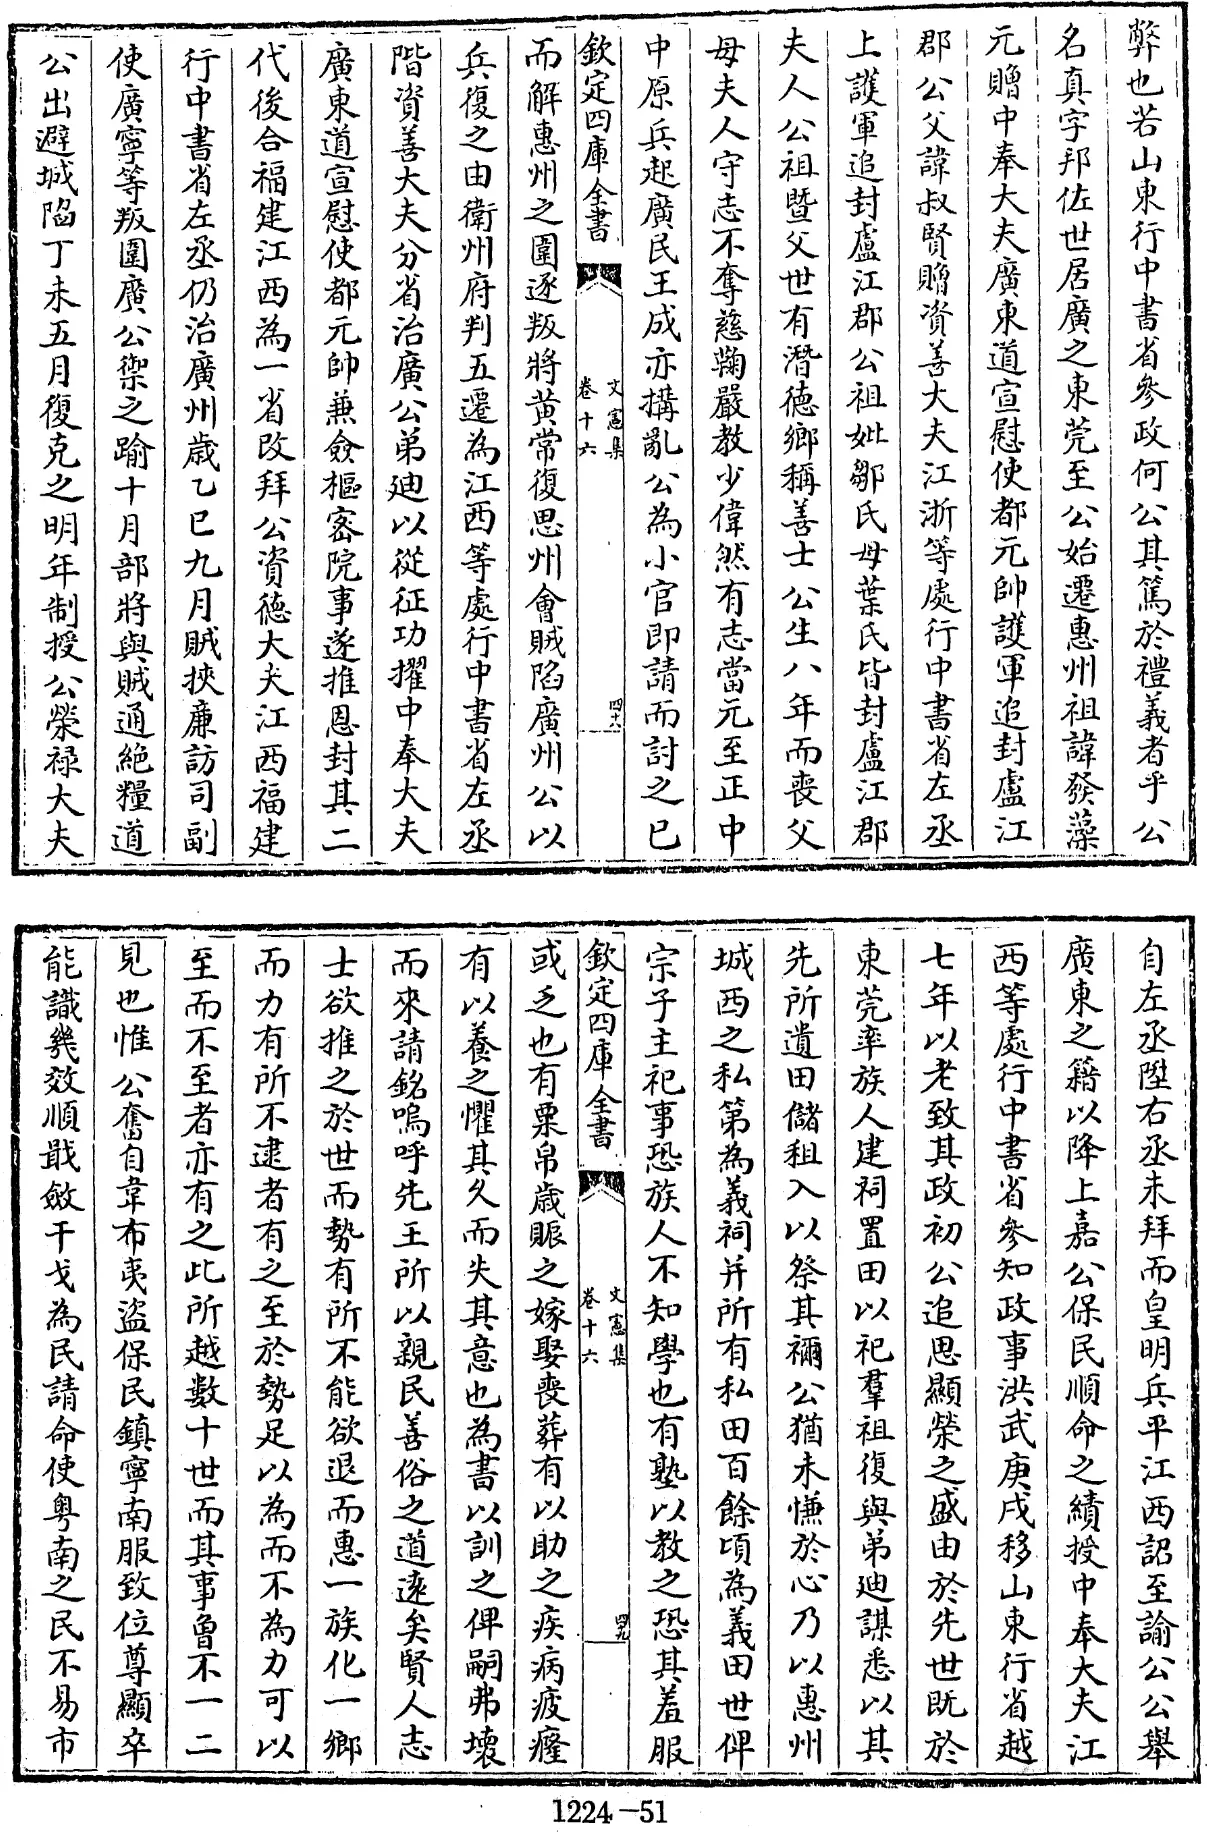 弊也若山東行中書省參政何公其篤於禮義者乎公
名真字邦佐世居廣之東莞至公始遷惠州祖諱發藻
元贈中奉大夫廣東道宣慰使都元帥護軍追封盧江
郡公父諱叔賢贈資善大夫江浙等處行中書省左丞
上護軍追封盧江郡公祖妣鄒氏母葉氏皆封盧江郡
夫人公祖暨父世有潛德鄉稱善士公生八年而喪父
母夫人守志不奪慈鞠嚴教少偉然有志當元至正中
中原兵起廣民王成亦搆亂公為小官即請而討之已
欽定四庫全書
文憲集
卷十六
四十八
而解惠州之圍逐叛將黃常復思州會賊陷廣州公以
兵復之由衛州府判五遷為江西等處行中書省左丞
階資善大夫分省治廣公弟廸以從征功擢中奉大夫
廣東道宣慰使都元帥兼僉樞密院事遂推恩封其二
代後合福建江西為一省改拜公資德大夫江西福建
行中書省左丞仍治廣州歲乙巳九月賊挾廉訪司副
使廣寧等叛圍廣公禦之踰十月部將與賊通絶糧道
公出避城陷丁未五月復克之明年制授公榮祿大夫
自左丞陞右丞未拜而皇明兵平江西詔至諭公公舉
廣東之籍以降上嘉公保民順命之績授中奉大夫江
西等處行中書省參知政事洪武庚戌移山東行省越
七年以老致其政初公追思顯榮之盛由於先世既於
東莞率族人建祠置田以祀羣祖復與弟廸謀悉以其
先所遺田儲租入以祭其禰公猶未慊於心乃以惠州
城西之私第為義祠并所有私田百餘頃為義田世俾
宗子主祀事恐族人不知學也有塾以教之恐其羞服
欽定四庫全書
文憲集
卷十六
四十九
或乏也有粟帛歲賑之嫁娶喪葬有以助之疾病疲癃
有以養之懼其久而失其意也為書以訓之俾嗣弗壞
而來請銘嗚呼先王所以親民善俗之道遠矣賢人志
士欲推之於世而勢有所不能欲退而惠一族化一鄉
而力有所不逮者有之至於勢足以為而不為力可以
至而不至者亦有之此所越數十世而其事魯不一二
見也惟公奮自韋布夷盜保民鎮寧南服致位尊顯卒
能識幾效順戢斂干戈為民請命使粵南之民不易市
1224—51